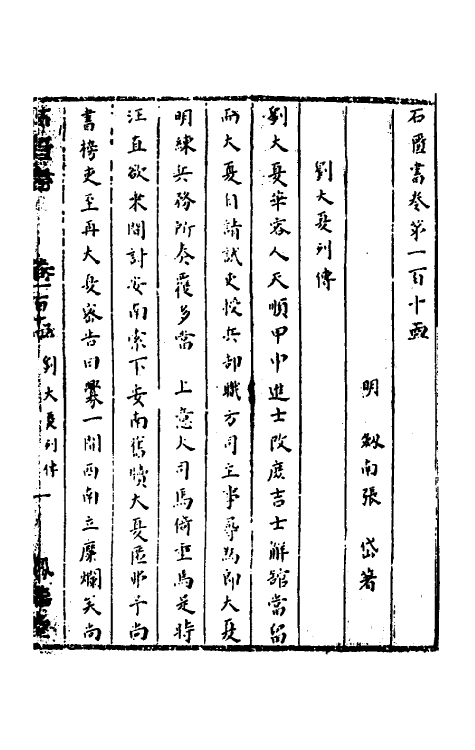 石匱書卷第一百十四
明 劔南張 岱著
劉大夏列傳
劉大夏華容人天順甲申進士改庶吉士觧舘當留
而大夏自請試吏授兵部職方司主事尋爲郎大夏
明練兵務所奏覆多當 上意大司馬倚重焉是時
汪直欲來間討安南索下安南舊牘大夏匿弗予尚
書搒吏至再大夏密告曰釁一開西南立糜爛矣尚
卷一百十四 劉大夏列傳 一